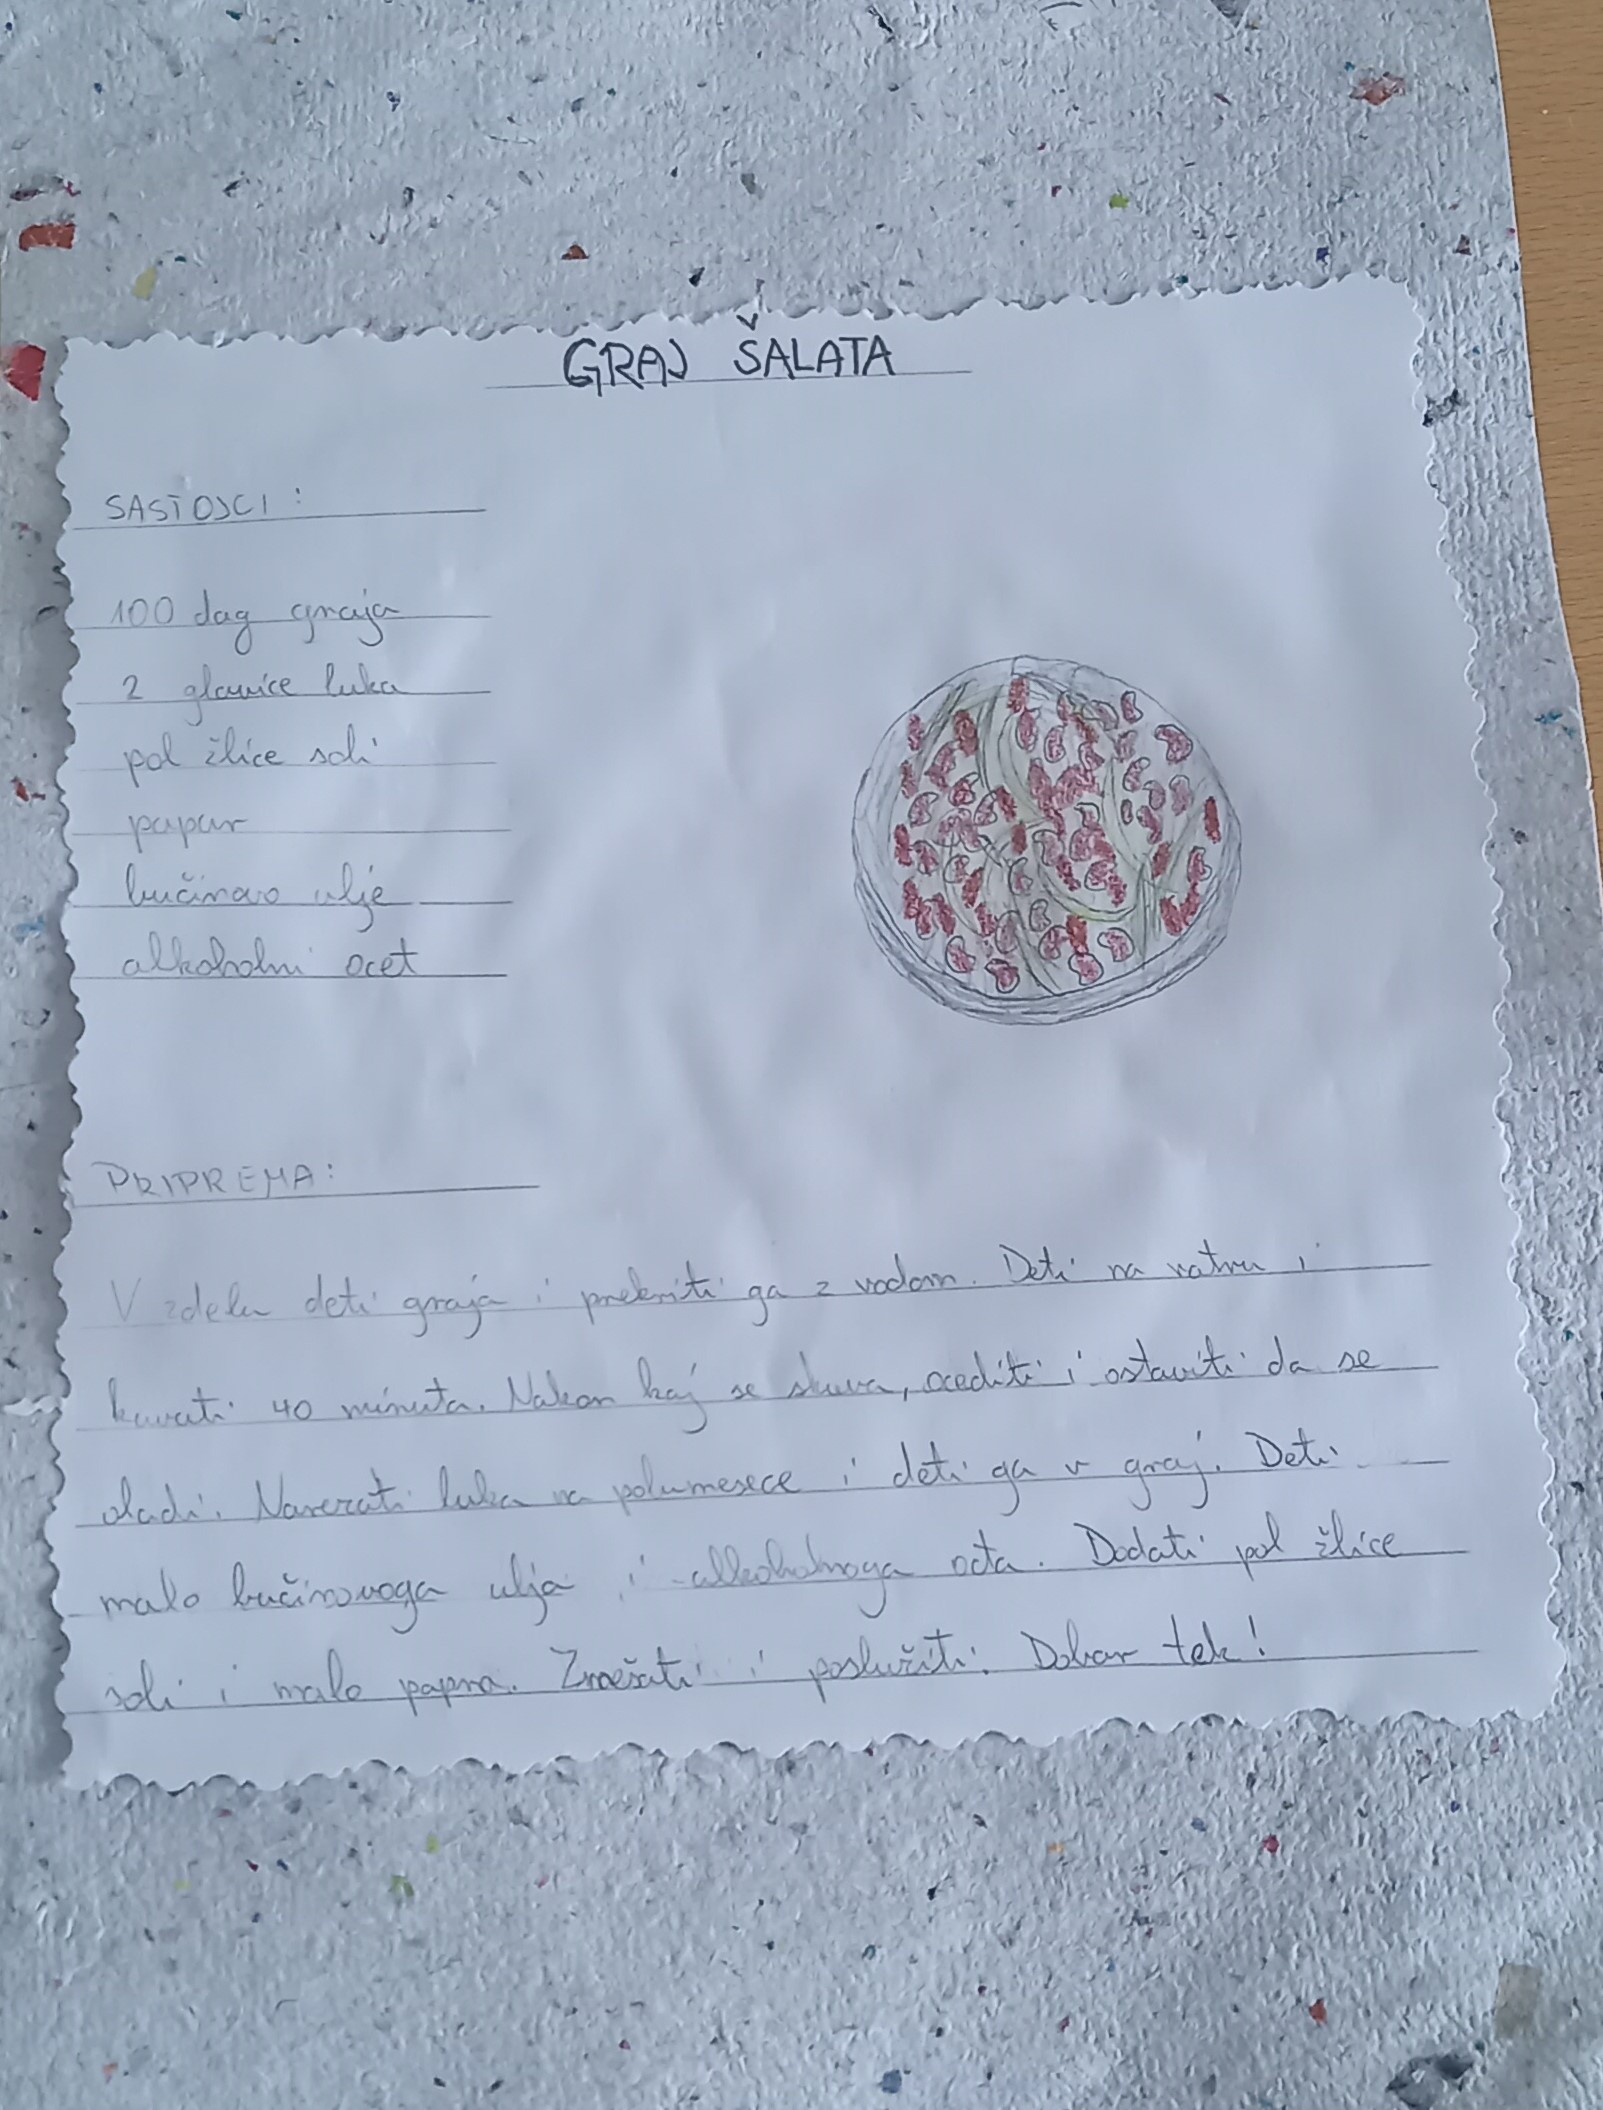 GRAJ ŠALATA
SASTOJCI:
100 dag graja
2 glavice luka
pol žlice soli
papar
bučinovo ulje
alkoholni ocet
PRIPREMA:
V zdelu deti graja i prekriti ga z vodom. Deti na vatru i
kuvati 40 minuta. Nakon kaj se skuva, ocediti i ostaviti da se
oladi. Narezati luka na polumesece i deti ga v graj. Deti
malo bučinovoga ulja i alkoholnoga octa. Dodati pol žlice
soli i malo papra. Zmešati i poslužiti. Dobar tek!